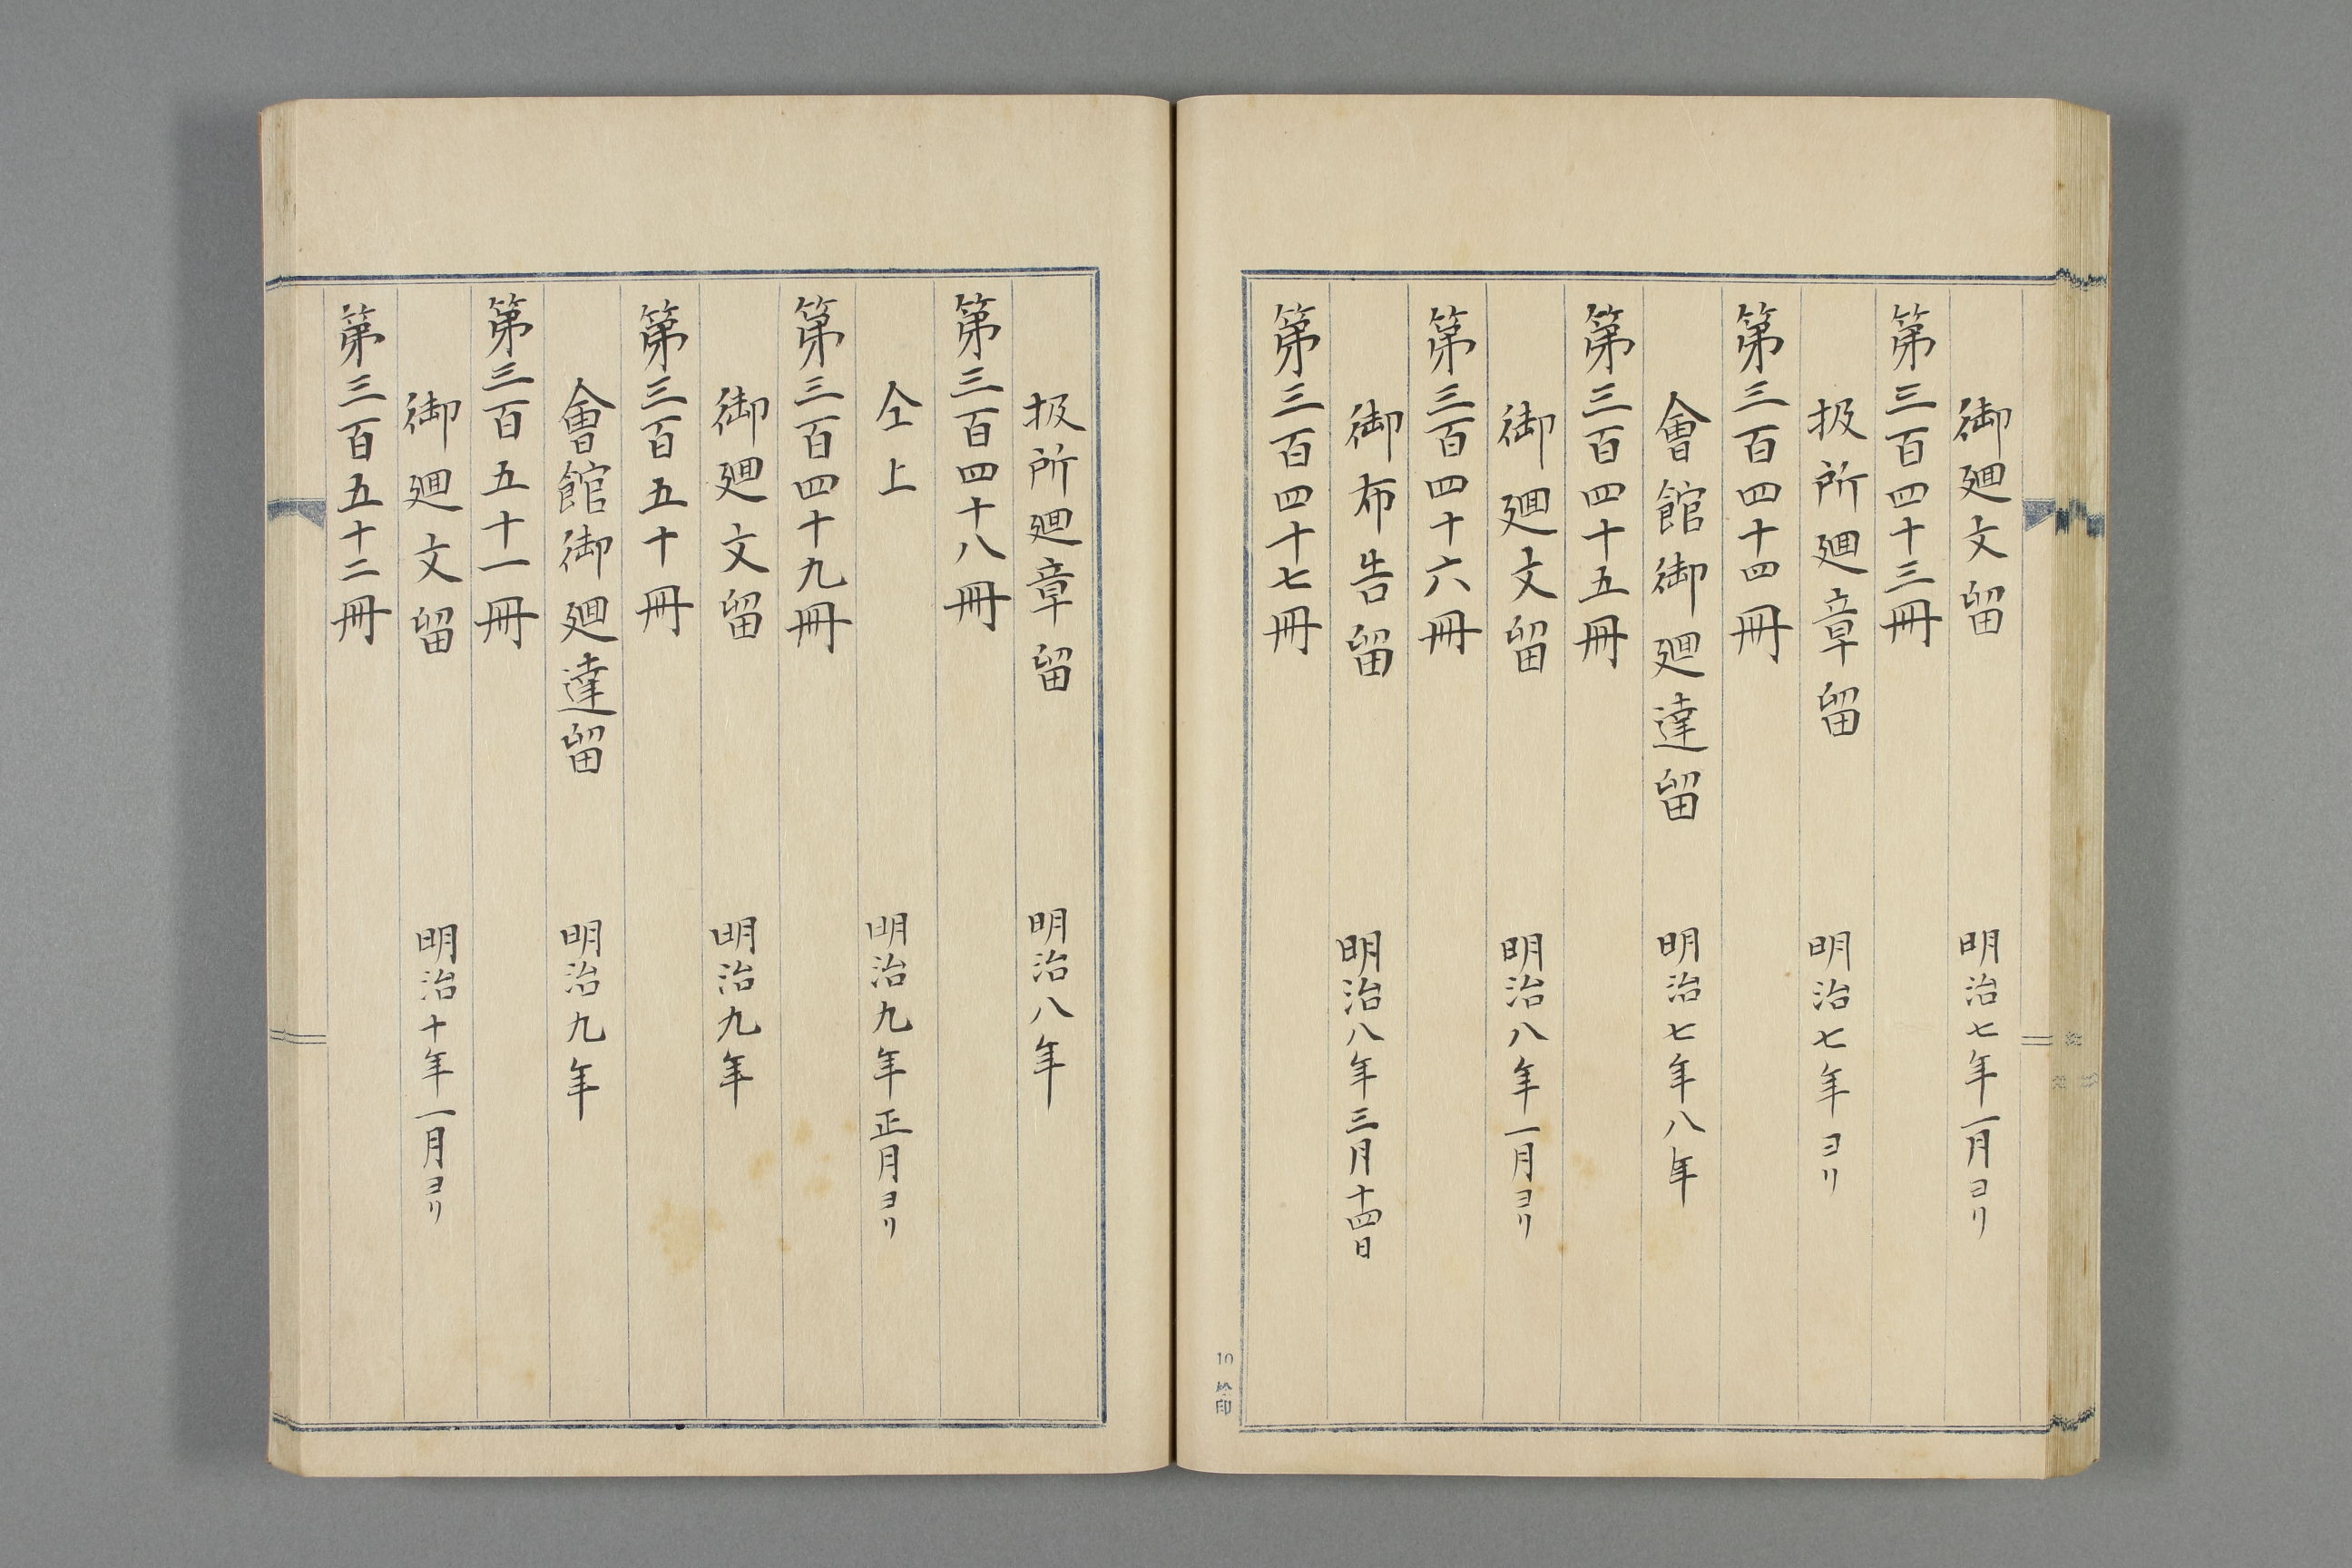 御廻文留 明治七年一月ヨリ
第三百四十三冊
扱所廻章留 明治七年ヨリ
第三百四十四冊
會館御廻達留 明治七年八年
第三百四十五冊
御廻文留 明治八年一月ヨリ
第三百四十六冊
御布告留 明治八年三月十四日
第三百四十七冊
10
印
扱所廻章留 明治八年
第三百四十八冊
仝上 明治九年正月ヨリ
第三百四十九冊
御廻文留 明治九年
第三百五十冊
會館御廻達留 明治九年
第三百五十一冊
御廻文留 明治十年一月ヨリ
第三百五十二冊